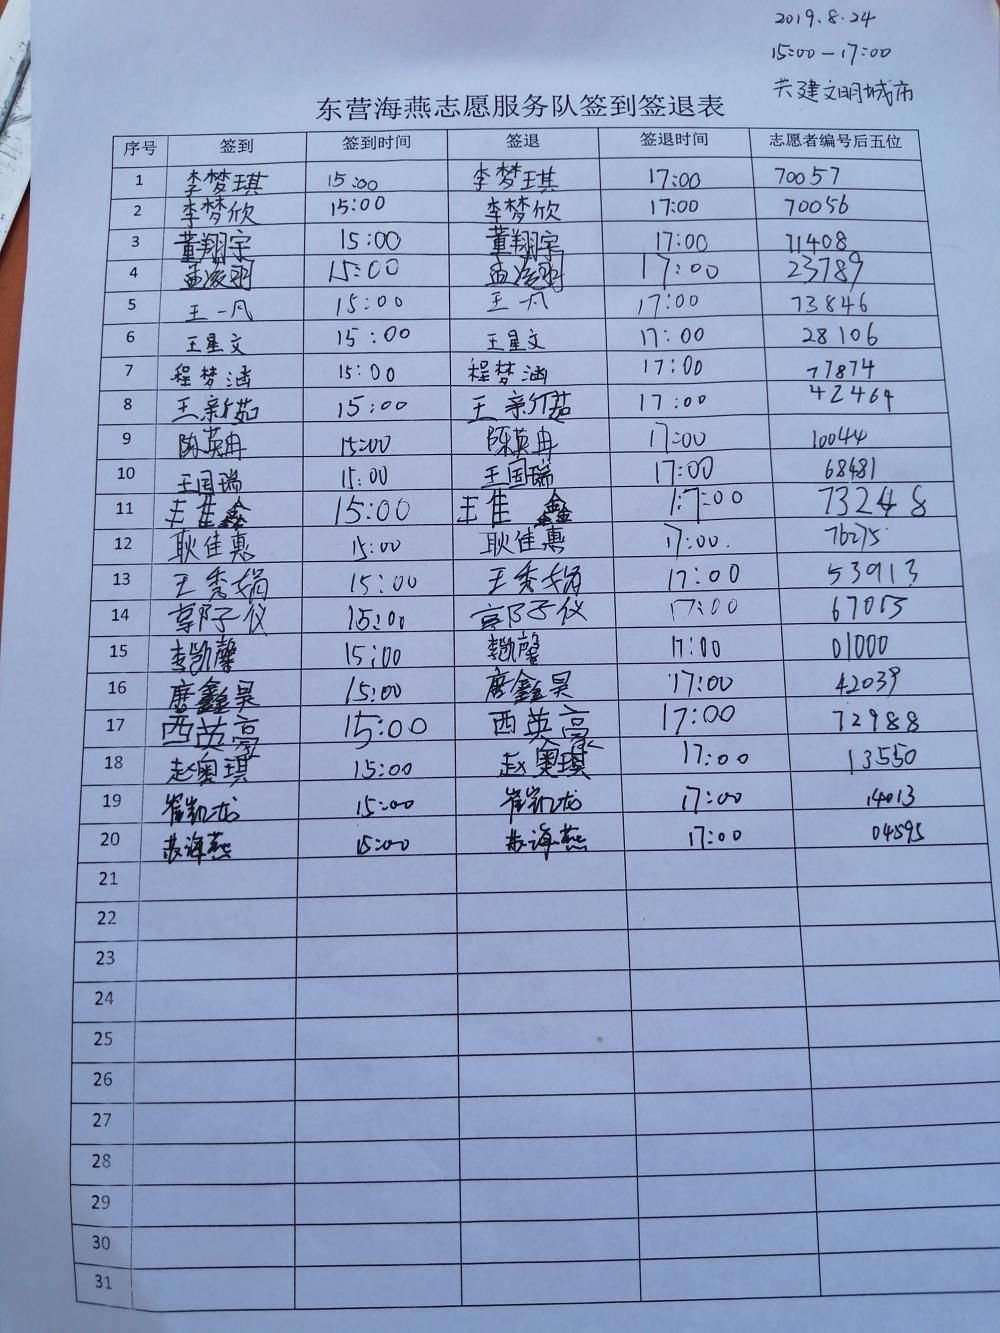 2019.8.24
15:00-17:00
共建文明城市
东营海燕志愿服务队签到签退表
序号 签到 签到时间 签退 签退时间 志愿者编号后五位
1 李梦琪 15:00 李梦琪 17:00 70057
2 李梦欣 15:00 李梦欣 17:00 70056
3 董翔宇 15:00 董翔宇 17:00 71408
4 15:00 17:00 23789
5 王一凡 15:00 王一凡 17:00 73846
6 王星文 15:00 王星文 17:00 28106
7 程梦涵 15:00 程梦涵 17:00 77874
8 王新茹 15:00 王新茹 17:00 42464
9 陈英冉 15:00 陈英冉 17:00 10044
10 王国瑞 15:00 王国瑞 17:00 68481
11 王佳鑫 15:00 王佳鑫 17:00 73248
12 耿佳惠 15:00 耿佳惠 17:00. 76275
13 王秀娟 15:00 王秀娟 17:00 53913
14 郭子仪 15:00 郭子仪 17:00
15 李凯馨 15:00 李凯馨 17:00 01000
16 唐鑫昊 15:00 唐鑫昊 17:00 42039
17 西英豪 15:00 西英豪 17:00 72988
18 赵奥琪 15:00 赵奥琪 17:00 13550
19 崔凯龙 15:00 崔凯龙 17:00 14013
20 苏海燕 15:00 苏海燕 17:00 04595
21
22
23
24
25
26
27
28
29
30
31